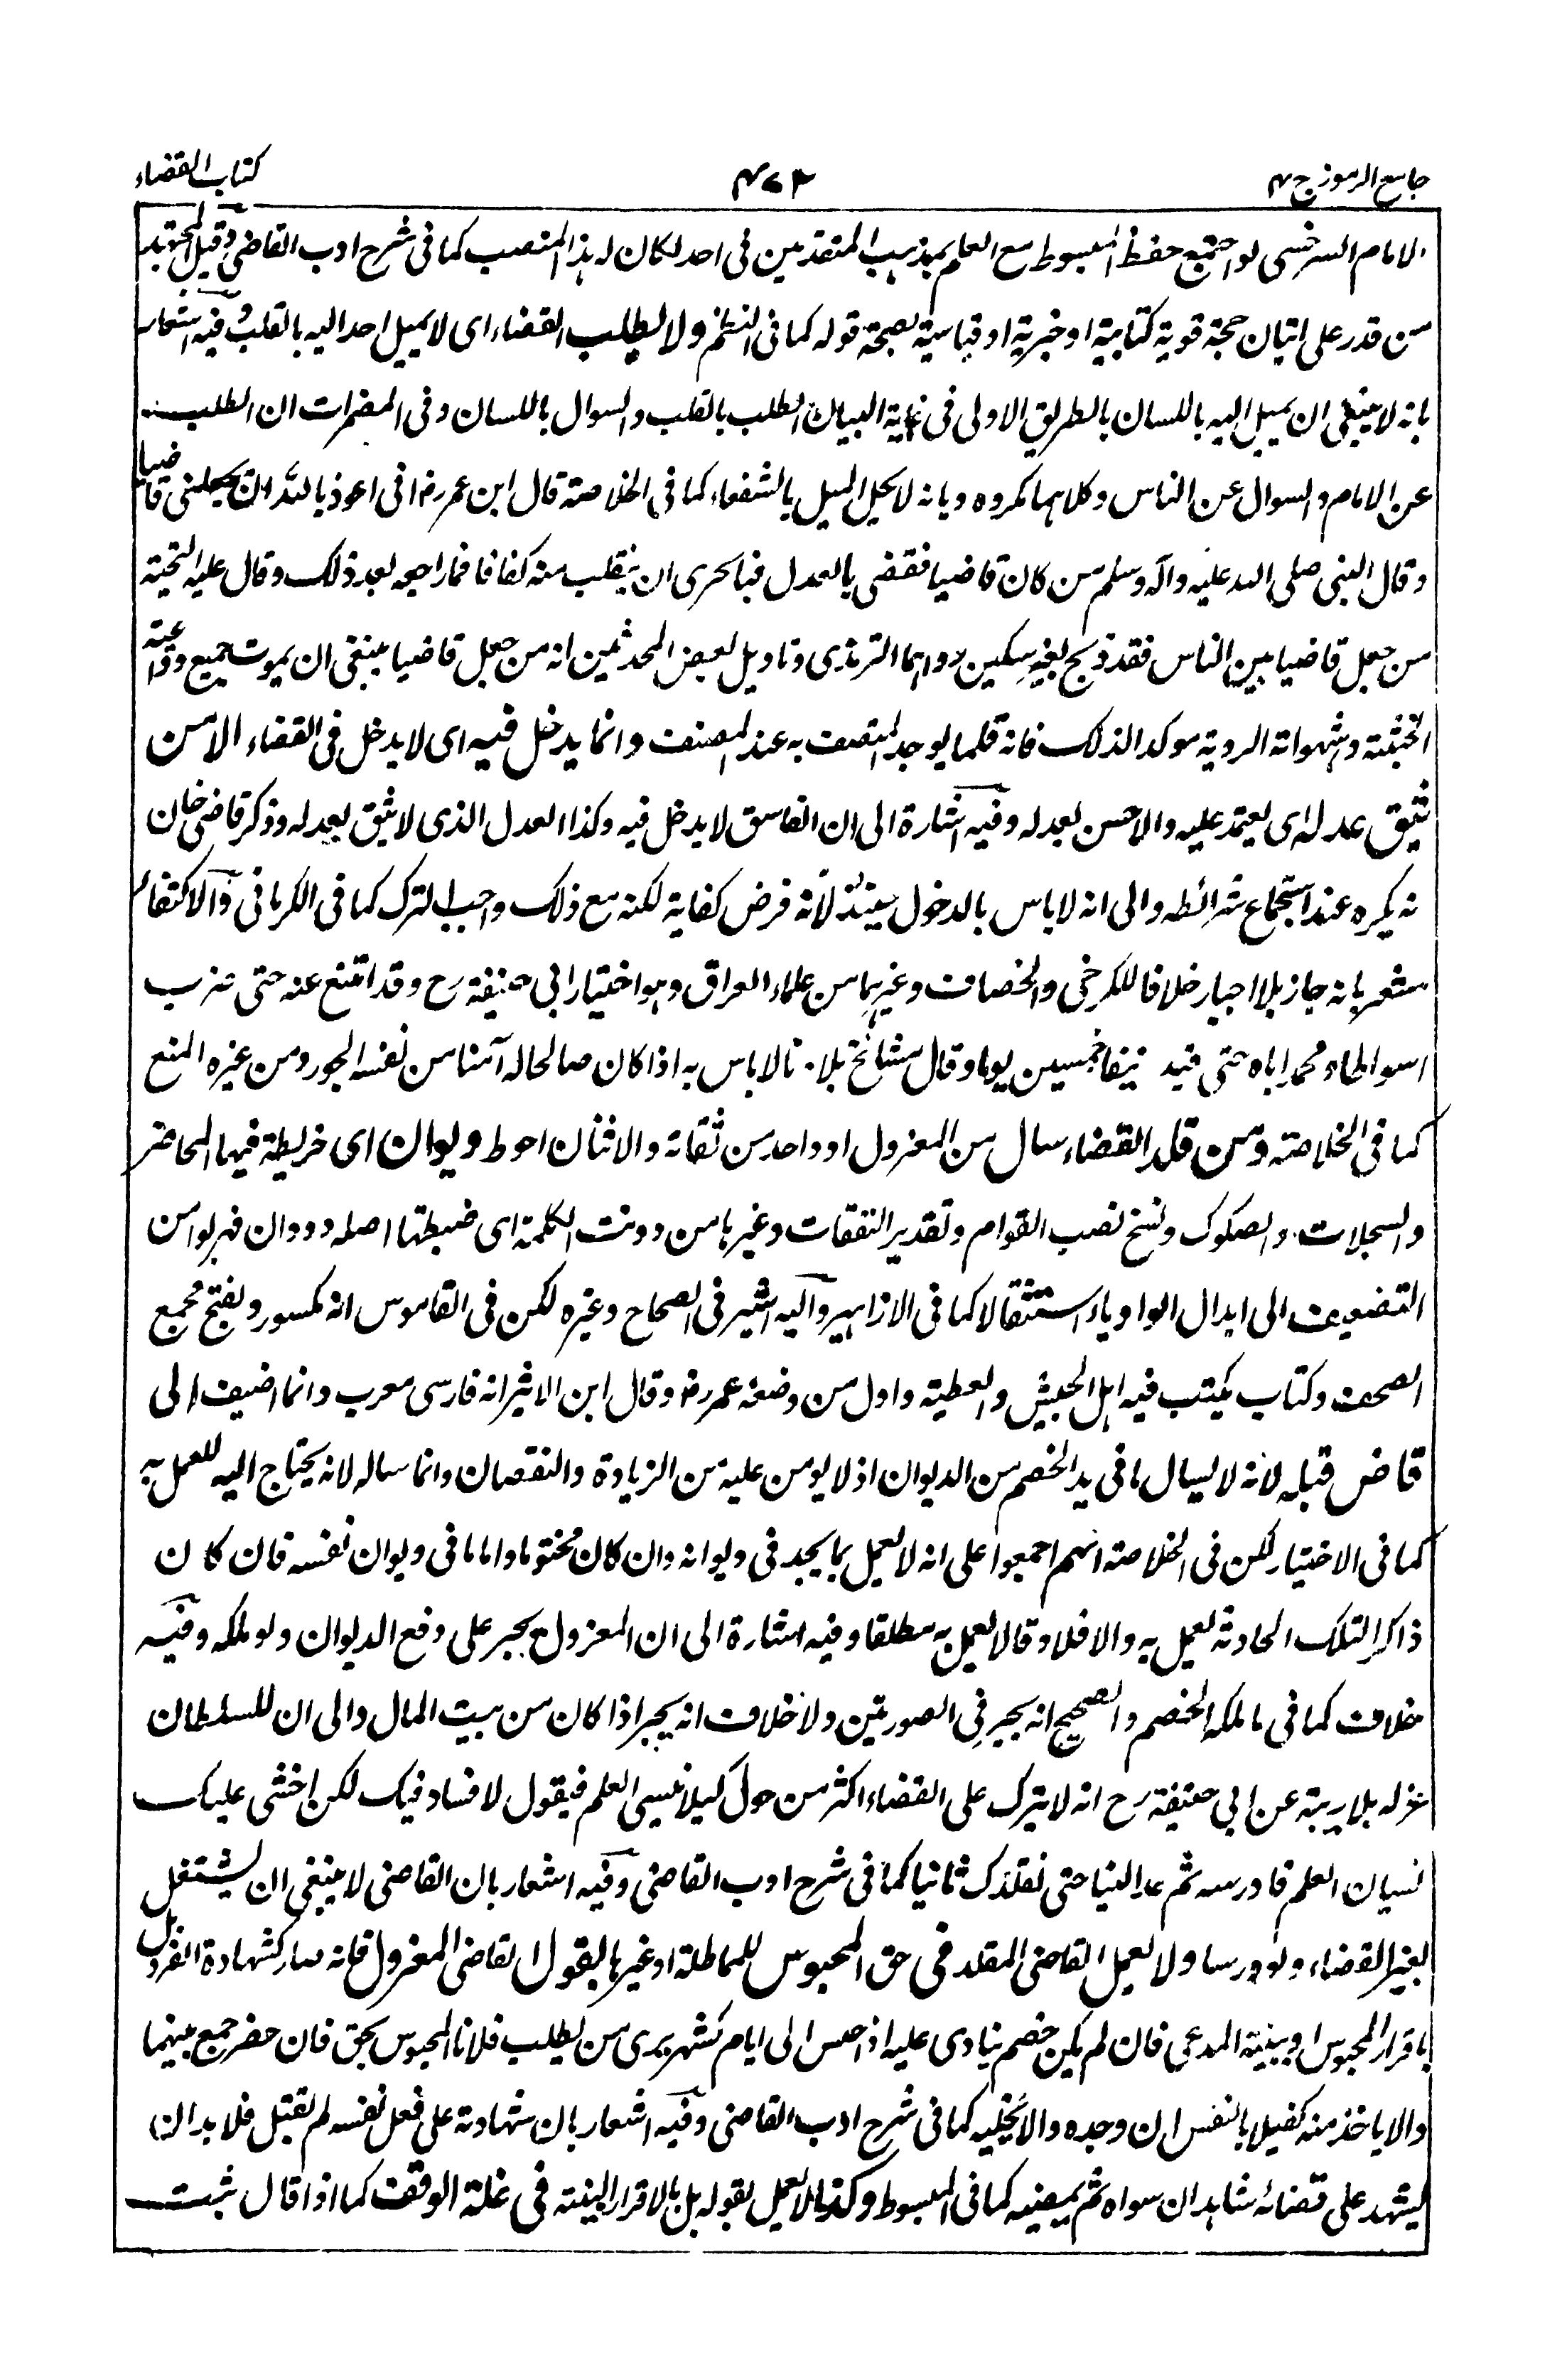 جامع الرموز ج ٣
كتاب القضاء
الامام السرخسى لو اجتمع حفظ المبسوط مع العلم بمذهب المتقدمين فى احد لكان له هذا المنصب كما فى شرح ادب القاضى وقيل المجتهد
من قدر على اتيان حجة قوية كتابية او خبرية او قياسية لصحة قوله كما فى النظم ولا يطلب القضاء اى لا يميل احد اليه بالقلب وفيه اشعار
بانه لا ينبغى ان يميل اليه باللسان بالطريق الاولى فى نهاية البيان الطلب بالقلب والسوال باللسان وفى المضمرات ان الطلب
عن الامام والسوال عن الناس وكلاهما مكروه وبانه لا يحل الميل بالشفعاء كما فى الخلاصة قال ابن عمر رض انى اعوذ بالله ان يجعلنى قاضيا
وقال النبى صلى الله عليه وآله وسلم من كان قاضيا فقضى بالعدل فبالحرى ان ينقلب منه كفافا فما راجعه بعد ذلك وقال عليه التحية
من جعل قاضيا بين الناس فقد ذبح بغير سكين رواهما الترمذى وتاويل بعض المحدثين انه من جعل قاضيا ينبغى ان يموت جميع دواعيه
الخبيثة وشهواته الردية موكد الذلك فانه قلما يوجد المتصف به عند المصنف وانما يدخل فيه اى لا يدخل فى القضاء الا من
يثق عدله اى يعتمد عليه والاحسن بعدله وفيه اشارة الى ان الفاسق لا يدخل فيه وكذا العدل الذى لا يثق بعدله وذكر قاضى خان
نه يكره عند استجماع شرائطه والى انه لا باس بالدخول حينئذ لانه فرض كفاية لكنه مع ذلك واجب الترك كما فى الكرمانى والاكتفاء
مشعر بانه جاز بلا اجبار خلافا للكرخى والخصاف وغيرهما من علماء العراق وهو اختيار ابى حنيفة رح وقد امتنع عنه حتى ضرب
اسواطا محمد اباه حتى قيد نيفا خمسين يوما وقال مشائخ بلادنا لا باس به اذا كان صالحا له آمنا من نفسه الجور ومن غيره المنع
كما فى الخلاصة ومن قلد القضاء سال من المعزول او واحد من ثقاته والاثنان احوط ديوان اى خريطة فيها المحاضر
والسجلات والصكوك ونسخ نصب القوام وتقدير النفقات وغيرها من دونت الكلمة اى ضبطتها اصله دووان فهربوا من
التضعيف الى ابدال الواو ياء استثقالا كما فى الازاهير واليه اشير فى الصحاح وغيره لكن فى القاموس انه مكسور ويفتح مجمع
الصحف وكتاب يكتب فيه اهل الجيش والعطية واول من وضعه عمر رض وقال ابن الاثير انه فارسى معرب وانما اضيف الى
قاض قبله لانه لا يسال ما فى يد الخصم من الديوان اذ لا يومن عليه من الزيادة والنقصان وانما ساله لانه يحتاج اليه للعمل به
كما فى الاختيار لكن فى الخلاصة انهم اجمعوا على انه لا يعمل بما يجد فى ديوانه وان كان مختوما واما ما فى ديوان نفسه فان كان
ذاكرا لتلك الحادثة يعمل به والا فلا وقالا يعمل به مطلقا وفيه اشارة الى ان المعزول يجبر على دفع الديوان ولو ملكه وفيه
خلاف كما فى ما ملكه الخصم والصحيح انه يجبر فى الصورتين ولا خلاف انه يجبر اذا كان من بيت المال والى ان للسلطان
عزله بلا ريبة عن ابى حنيفة رح انه لا يترك على القضاء اكثر من حول كيلا ينسى العلم فيقول لا فساد فيك لكن اخشى عليك
نسيان العلم فادرسه ثم عد الينا حتى نقلدك ثانيا كما فى شرح ادب القاضى وفيه اشعار بان القاضى لا ينبغى ان يشتغل
بغير القضاء ولو درسا ولا يعمل القاضى المقلد فى حق المحبوس للمماطلة او غيرها بقول القاضى المعزول فانه صار كشهادة الفرد بل
باقرار المحبوس او ببينة المدعى فان لم يكن خصم ينادى عليه اذ احس الى ايام كشهر يرى من يطلب فلانا المحبوس بحق فان حضر جمع بينهما
والا ياخذ منه كفيلا بالنفس ان وجده والا يخليه كما فى شرح ادب القاضى وفيه اشعار بان شهادته على فعل نفسه لم تقبل فلا بد ان
يشهد على قضائه شاهدان سواه ثم يمضيه كما فى المبسوط وكذا لا يعمل بقوله بل بالاقرار والبينة فى غلة الوقف كما اذا قال ثبت